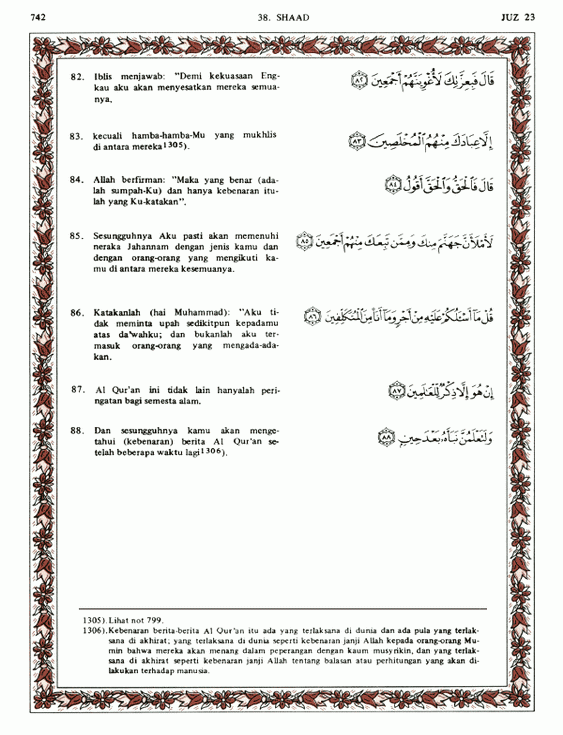 742 38. SHAAD JUZ 23
82. Iblis menjawab: "Demi kekuasaan Eng-
kau aku akan menyesatkan mereka semua-
nya,
قَالَ فَبِعِزَّتِكَ لَأُغْوِيَنَّهُمْ أَجْمَعِينَ ﴿٨٢﴾
83. kecuali hamba-hamba-Mu yang mukhlis
di antara mereka1305).
إِلَّا عِبَادَكَ مِنْهُمُ الْمُخْلَصِينَ ﴿٨٣﴾
84. Allah berfirman: "Maka yang benar (ada-
lah sumpah-Ku) dan hanya kebenaran itu-
lah yang Ku-katakan".
قَالَ فَالْحَقُّ وَالْحَقَّ أَقُولُ ﴿٨٤﴾
85. Sesungguhnya Aku pasti akan memenuhi
neraka Jahannam dengan jenis kamu dan
dengan orang-orang yang mengikuti ka-
mu di antara mereka kesemuanya.
لَأَمْلَأَنَّ جَهَنَّمَ مِنْكَ وَمِمَّنْ تَبِعَكَ مِنْهُمْ أَجْمَعِينَ ﴿٨٥﴾
86. Katakanlah (hai Muhammad): "Aku ti-
dak meminta upah sedikitpun kepadamu
atas da'wahku; dan bukanlah aku ter-
masuk orang-orang yang mengada-ada-
kan.
قُلْ مَا أَسْئَلُكُمْ عَلَيْهِ مِنْ أَجْرٍ وَمَا أَنَا مِنَ الْمُتَكَلِّفِينَ ﴿٨٦﴾
87. Al Qur'an ini tidak lain hanyalah peri-
ngatan bagi semesta alam.
إِنْ هُوَ إِلَّا ذِكْرٌ لِلْعَالَمِينَ ﴿٨٧﴾
88. Dan sesungguhnya kamu akan menge-
tahui (kebenaran) berita Al Qur'an se-
telah beberapa waktu lagi1306).
وَلَتَعْلَمُنَّ نَبَأَهُ بَعْدَ حِينٍ ﴿٨٨﴾
1305). Lihat not 799.
1306). Kebenaran berita-berita Al Qur'an itu ada yang terlaksana di dunia dan ada pula yang terlak-
sana di akhirat; yang terlaksana di dunia seperti kebenaran janji Allah kepada orang-orang Mu-
min bahwa mereka akan menang dalam peperangan dengan kaum musyrikin, dan yang terlak-
sana di akhirat seperti kebenaran janji Allah tentang balasan atau perhitungan yang akan di-
lakukan terhadap manusia.